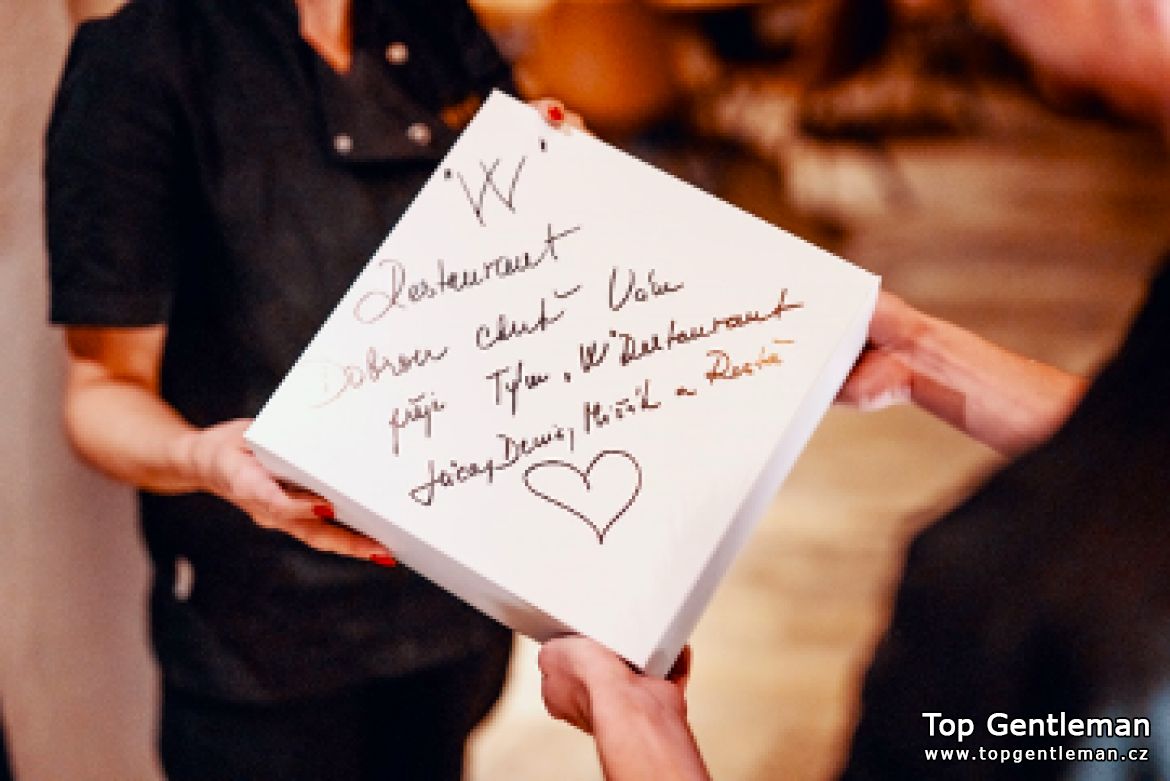 "W"
Restaurant
Dobrou chuť Vám
přeje Tým „W" Restaurant
Denis, Mišík a
Top Gentleman
www.topgentleman.cz